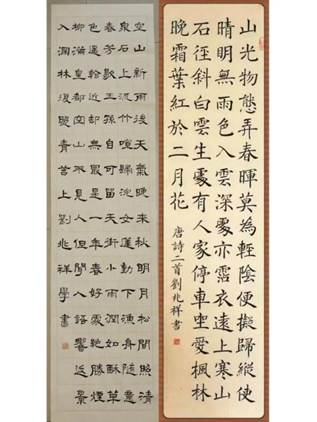 山光物態弄春暉莫為輕陰便擬歸縱使
晴明無雨色入雲深處亦霑衣遠上寒山
石徑斜白雲生處有人家停車坐愛楓林
晚霜葉紅於二月花
唐詩二首劉兆祥書
空山新雨後天氣晚來秋明月松間照清
泉石上流竹喧歸浣女蓮動下漁舟隨意
春芳歇王孫自可留天街小雨潤如酥草
色遙看近却無最是一年春好處絕勝煙
柳滿皇都空山不見人但聞人語響返景
入深林復照青苔上劉兆祥學書